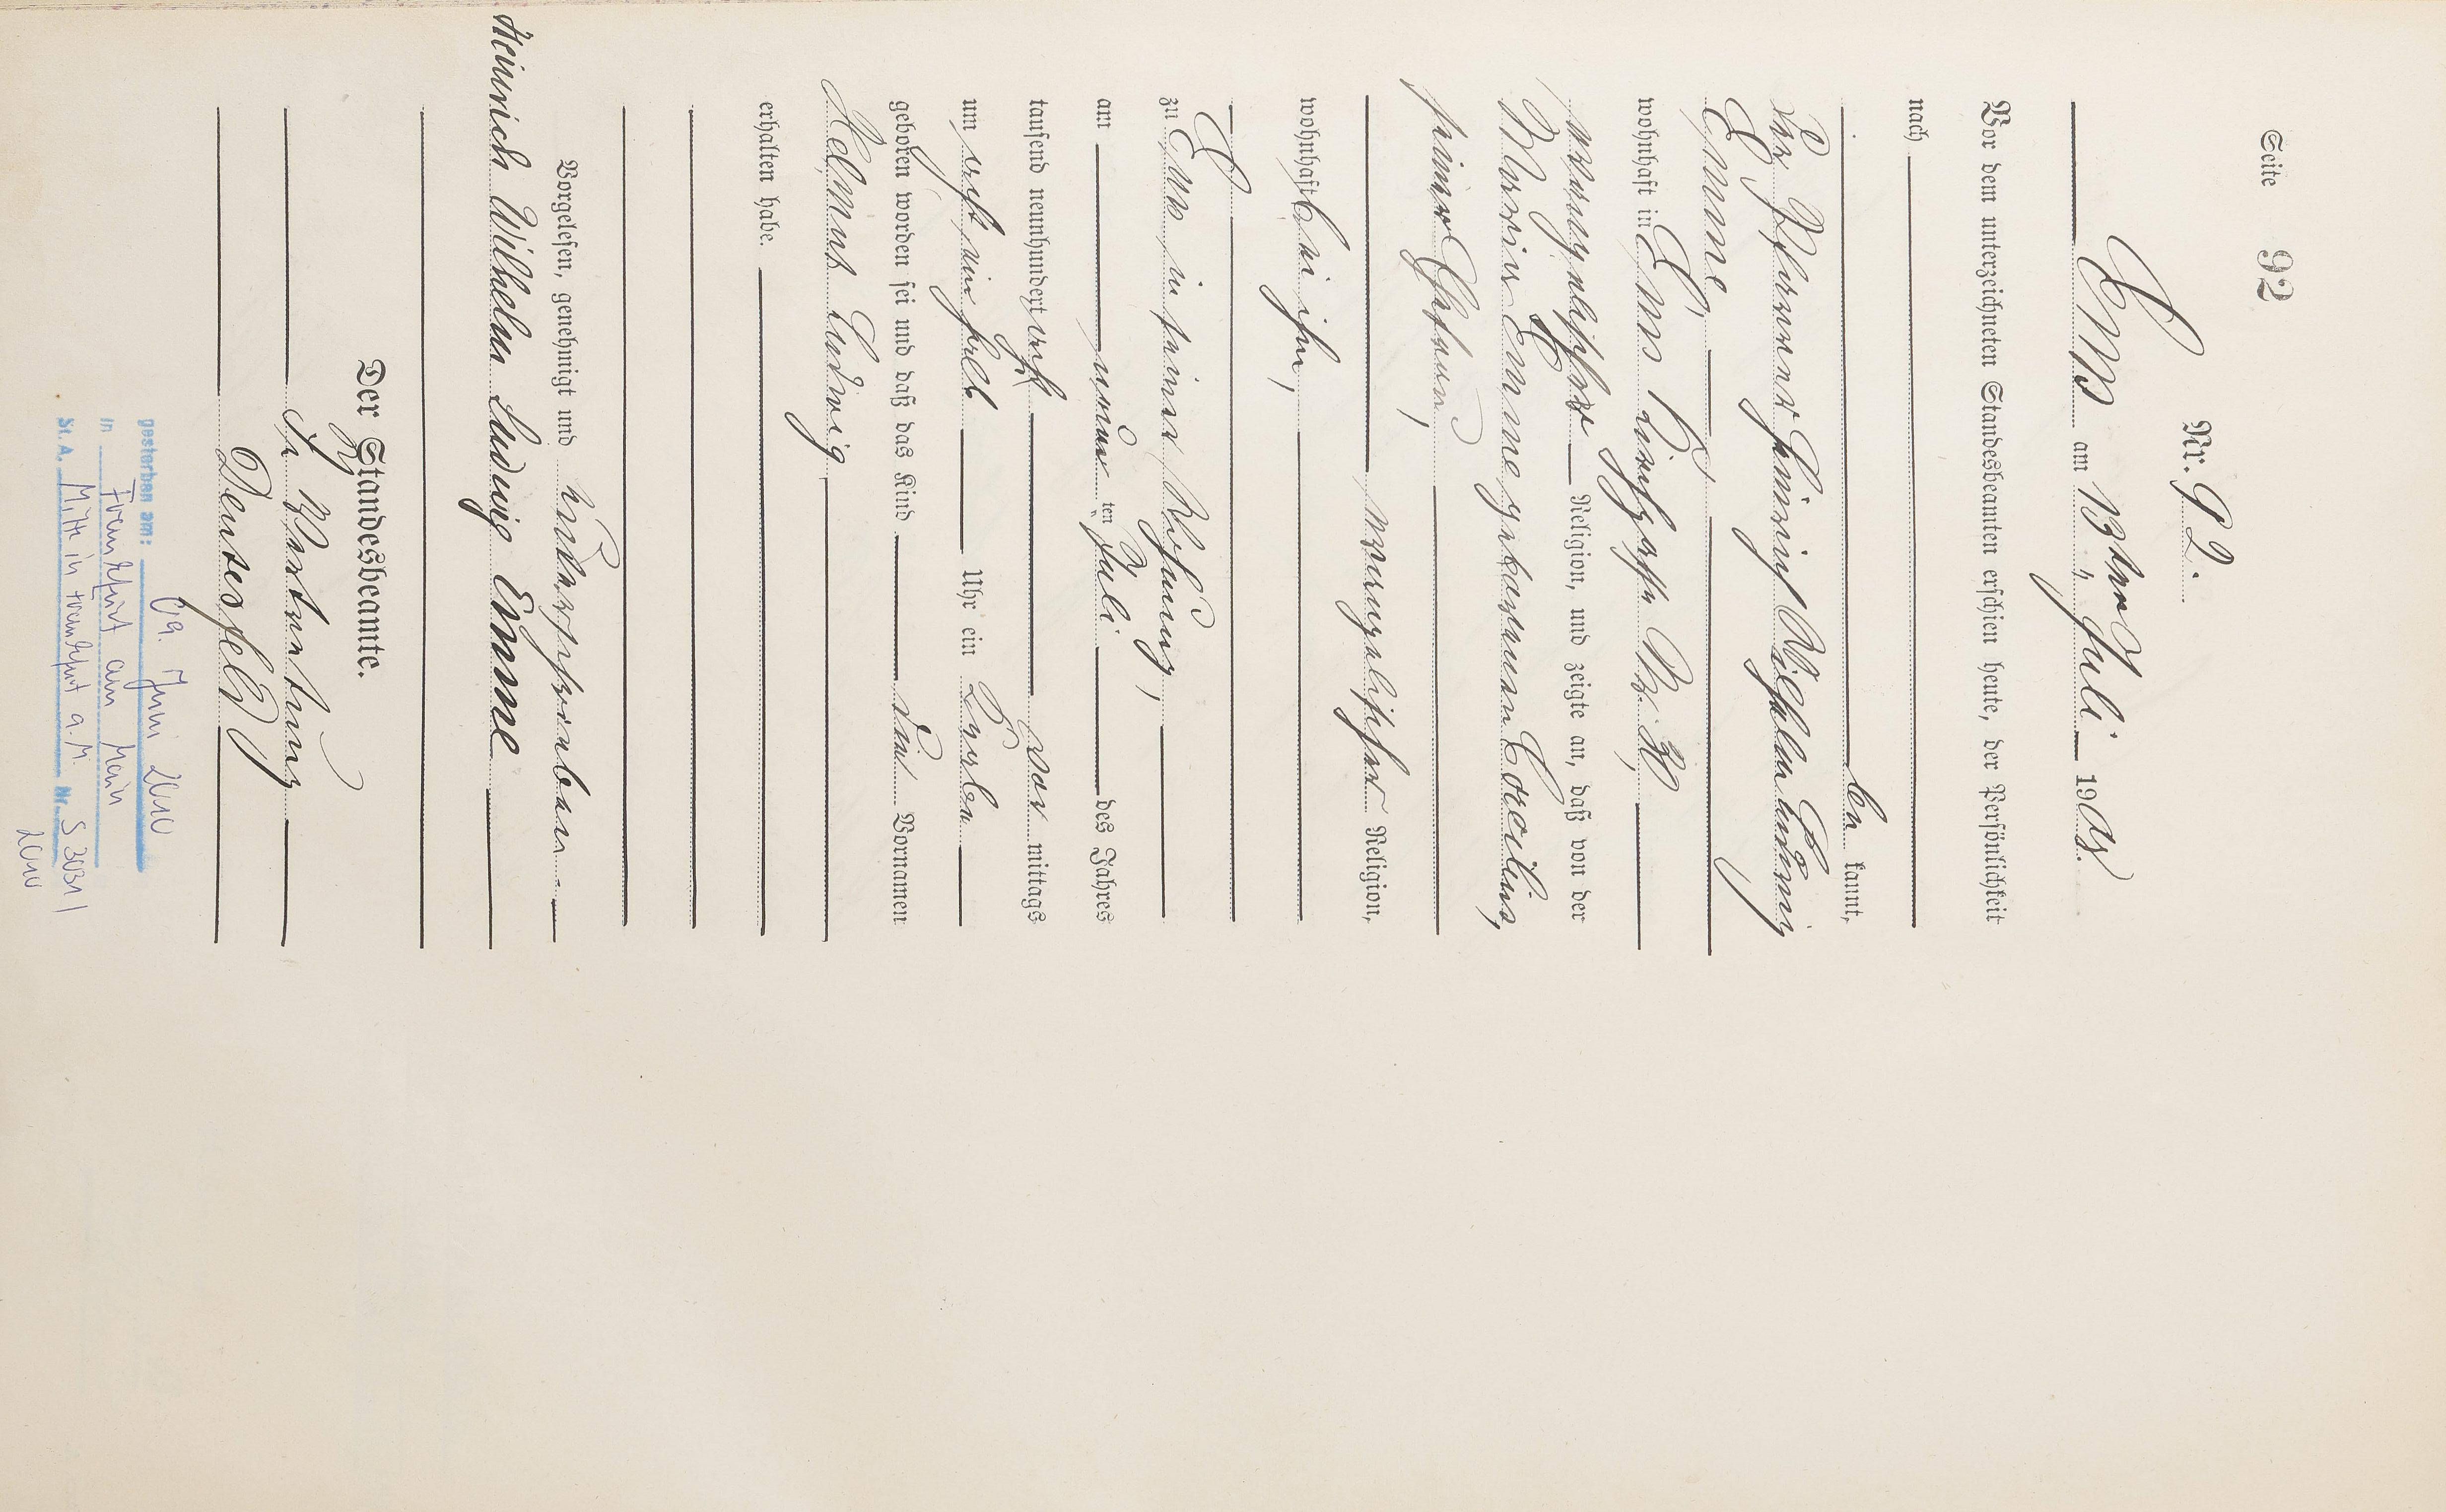 Seite 92
Nr. 92.
Ems am 13ten Juli 1908.
Vor dem unterzeichneten Standesbeamten erschien heute, der Persönlichkeit
nach
be kannt,
der Pfarrer Heinrich Wilhelm Ludwig
Emme,
wohnhaft in Ems Kirchgasse Nr.
evangelischer Religion, und zeigte an, daß von der
Maria Emme geborenen Coccilius,
seiner Ehefrau,
evangelischer Religion,
wohnhaft bei ihm,
zu Ems in seiner Wohnung,
am neunten Juli des Jahres
tausend neunhundert acht vor mittags
um acht ein halb Uhr ein Knabe
geboren worden sei und daß das Kind die Vornamen
Helmut Ludwig
erhalten habe.
Vorgelesen, genehmigt und unterschrieben
Heinrich Wilhelm Ludwig Emme
Der Standesbeamte.
In Vertretung
Deusesfeld
gestorben am: 09. Juni 2010
in Frankfurt am Main
St. A. Mitte in Frankfurt a. M. Nr. S 3031/
2010